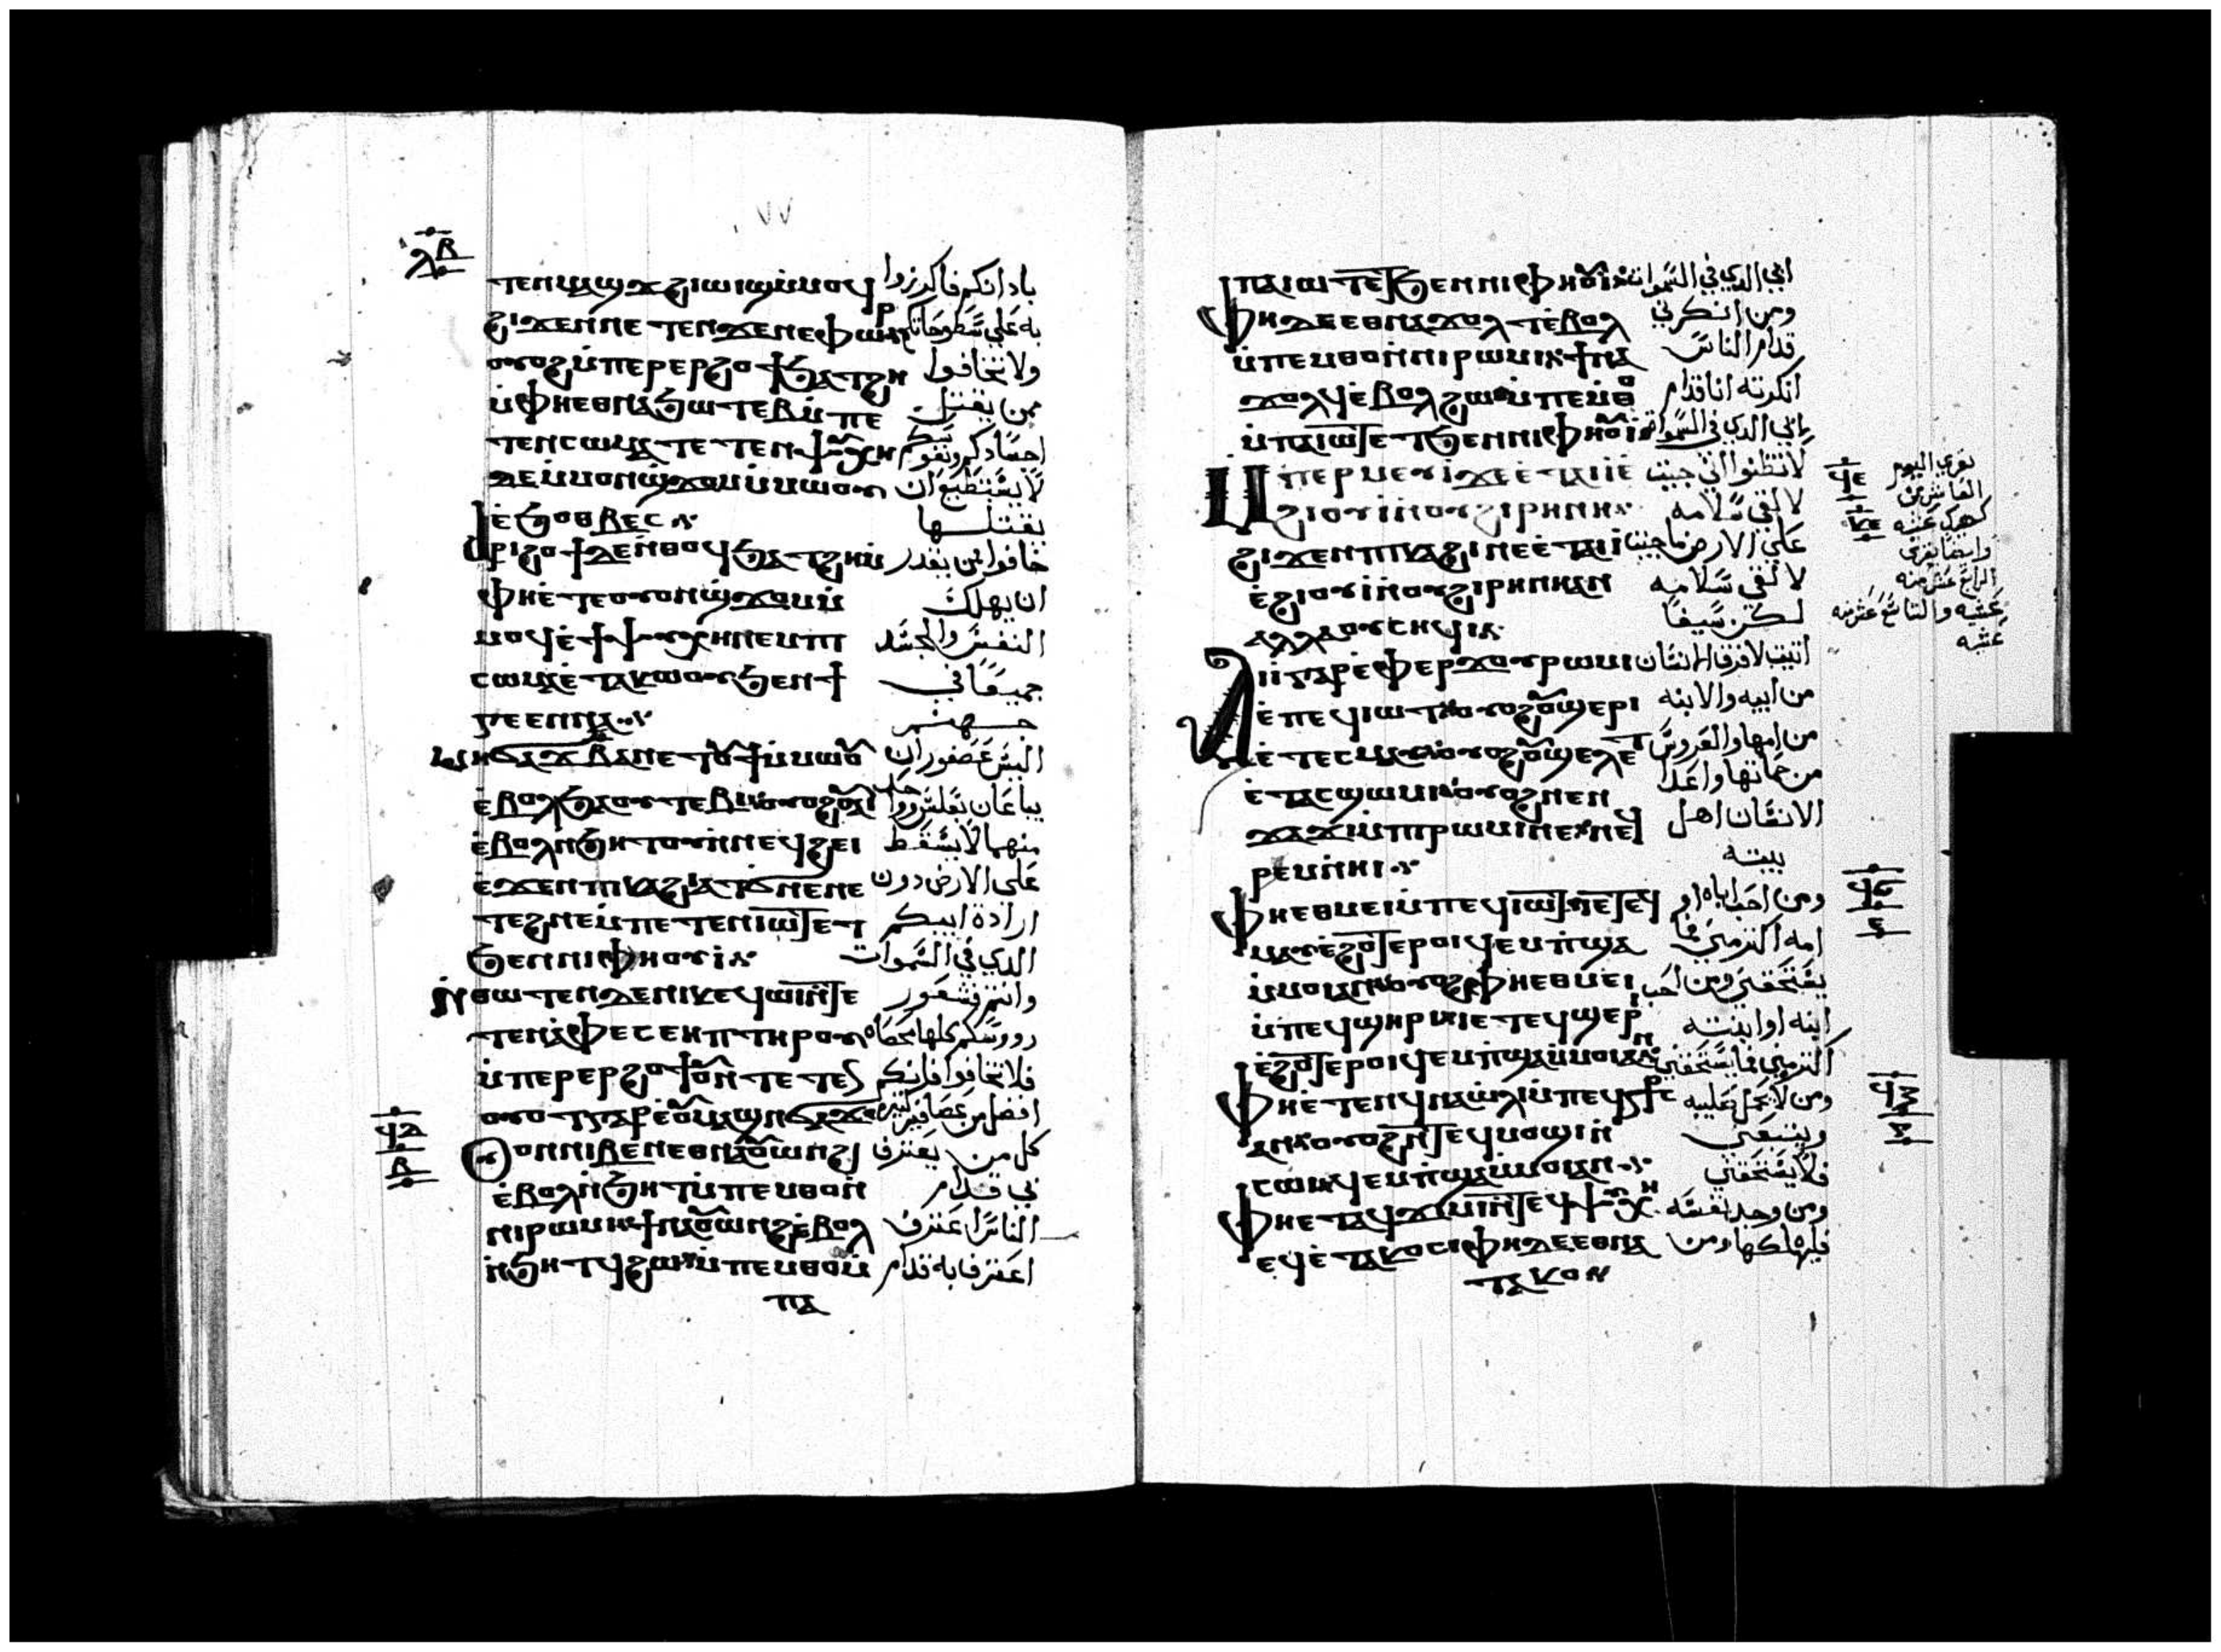 ⲗⲃ
٧٧
ⲧⲉⲛⲙⲁϣϫ ϩⲓⲱⲓϣ ⲙ̇ⲙⲟϥ بادانكم فاكرزوا
ϩⲓϫⲉⲛ ⲛⲉⲧⲉⲛϫⲉⲛⲉⲫⲱⲣ به علي سطوحاتكم
ⲟⲩⲟϩ ⲙ̇ⲡⲉⲣⲉⲣϩⲟϯ ϧⲁⲧϩⲏ ولا تخافوا
ⲙ̇ⲫⲏⲉⲑⲛⲁϧⲱⲧⲉⲃ ⲙ̇ⲡⲉ ممن يقتل
ⲧⲉⲛⲥⲱⲙⲁ ⲧⲉⲧⲉⲛⲯⲩⲭⲏ اجسادكم ونفوسكم
ⲇⲉ ⲙ̇ⲙⲟⲛϣϫⲟⲙ ⲙ̇ⲙⲱⲟⲩ لا يستطيع ان
ⲉ̇ϧⲟⲑⲃⲉⲥ يقتلها
ⲁⲣⲓϩⲟϯ ⲇⲉ ⲛ̇ⲑⲟϥ ϧⲁⲧϩⲏ ⲙ̇ خافوا ممن يقدر
ⲫⲏⲉ̇ⲧⲉⲟⲩⲟⲛϣϫⲟⲙ ⲙ̇ ان يهلك
ⲙⲟϥ ⲉ̇ϯⲯⲩⲭⲏ ⲛⲉⲙ ⲡⲓ النفس والجسد
ⲥⲱⲙⲁ ⲉ̇ⲧⲁⲕⲱⲟⲩ ϧⲉⲛ ϯ جميعًا في
ⲅⲉⲉⲛⲛⲁ جهنم
ⲙⲏ ϭⲁϫ ⲃ̅ ⲁⲛ ⲉⲧⲟⲩϯ ⲙ̇ⲙⲱⲟⲩ اليس عصفوران
ⲉ̇ⲃⲟⲗ ϧⲁ ⲟⲩⲧⲉⲃⲓ ⲟⲩⲟϩ ⲟⲩⲁⲓ يباعان بفلس وواحد
ⲉ̇ⲃⲟⲗ ⲛ̇ϧⲏⲧⲟⲩ ⲛ̇ⲛⲉϥϩⲉⲓ منهما لا يسقط
ⲉ̇ϫⲉⲛ ⲡⲓⲕⲁϩⲓ ⲁⲧϭⲛⲉ ⲡⲉ علي الارض دون
ⲧⲉϩⲛⲉ ⲙ̇ⲡⲉⲧⲉⲛⲓⲱⲧ ⲉⲧ ارادة ابيكم
ϧⲉⲛ ⲛⲓⲫⲏⲟⲩⲓ الدي في السموات
ⲛ̇ⲑⲱⲧⲉⲛ ⲇⲉ ⲛⲓⲕⲉϥⲱⲓ ⲛ̇ⲧⲉ وانتم فشعور
ⲧⲉⲛⲁ̇ⲫⲉ ⲥⲉⲏⲡ ⲧⲏⲣⲟⲩ رووسكم كلها محصاه
ⲙ̇ⲡⲉⲣⲉⲣϩⲟϯ ⲟⲩⲛ ⲧⲉⲧⲉⲛ فلا تخافوا فانكم
ⲟⲩⲟⲧ ⲅⲁⲣ ⲉ̇ⲟⲩⲙⲏϣ ⲛ̇ϭⲁϫ افضل من عصافير كثيره
ϥⲇ
ⲃ
ⲟⲩⲟⲛ ⲛⲓⲃⲉⲛ ⲉⲑⲛⲁⲟⲩⲱⲛϩ كل من يعترف
ⲉ̇ⲃⲟⲗ ⲛ̇ϧⲏⲧ ⲙ̇ⲡⲉⲙⲑⲟ ⲛ̇ بي قدام
ⲛⲓⲣⲱⲙⲓ ϯⲛⲁⲟⲩⲱⲛϩ ⲉ̇ⲃⲟⲗ الناس اعترف
ⲛ̇ϧⲏⲧϥ ϩⲱ ⲙ̇ⲡⲉⲙⲑⲟ ⲙ̇ اعترف انا به قدام
ⲡⲁ
ⲡⲁⲓⲱⲧ ⲉⲧϧⲉⲛ ⲛⲓⲫⲏⲟⲩⲓ ابي الدي في السموات
ⲫⲏ ⲇⲉ ⲉⲑⲛⲁϫⲟⲗⲧ ⲉ̇ⲃⲟⲗ ومن انكرني
ⲙ̇ⲡⲉⲙⲑⲟ ⲛ̇ⲛⲓⲣⲱⲙⲓ ϯⲛⲁ قدام الناس
ϫⲟⲗϥ ⲉ̇ⲃⲟⲗ ϩⲱ ⲙ̇ⲡⲉⲙ̇ⲑⲟ انكرته انا قدام
ⲙ̇ⲡⲁⲓⲱⲧ ⲉⲧϧⲉⲛ ⲛⲓⲫⲏⲟⲩⲓ ابي الدي في السموات
ⲙ̇ⲡⲉⲣⲙⲉⲩⲓ ϫⲉ ⲉ̇ⲧⲁⲓⲓ̇ ⲉ̇ لا تظنوا اني جيت
ϩⲓⲟⲩⲓ̇ ⲛ̇ⲟⲩϩⲓⲣⲏⲛⲏ لالقي سلامه
ϩⲓϫⲉⲛ ⲡⲓⲕⲁϩⲓ ⲛⲉ ⲉ̇ⲧⲁⲓⲓ̇ علي الارض ما جيت
ⲉ̇ϩⲓⲟⲩⲓ̇ ⲛ̇ⲟⲩϩⲓⲣⲏⲛⲏ ⲁⲛ لالقي سلامه
ⲁⲗⲗⲁ ⲟⲩⲥⲏϥⲓ لكن سيفًا
ϥⲉ
ⲕⲉ
يقري اليوم
العاشر من
كيهك عشيه
وايضا يقري
الرابع عشر منه
عشيه والتاسع عشر منه
عشيه
ⲁⲓⲓ̇ ⲅⲁⲣ ⲉ̇ⲫⲉⲣϫ ⲟⲩⲣⲱⲙⲓ اتيت لافرق الانسان
ⲉ̇ⲡⲉϥⲓⲱⲧ ⲟⲩⲟϩ ⲟⲩϣⲉⲣⲓ من ابيه والابنه
ⲉ̇ⲧⲉⲥⲙⲁⲩ ⲟⲩⲟϩ ⲟⲩϣⲉⲗⲉⲧ من امها والعروس
ⲉ̇ⲧⲁⲥϣⲱⲙⲓ ⲟⲩⲟϩ ⲛⲉⲛ من حماتها واعدا
ϫⲁϫⲓ ⲙ̇ⲡⲓⲣⲱⲙⲓ ⲛⲉ ⲛⲉϥ الانسان اهل
ⲣⲉⲙⲛ̇ⲏⲓ بيته
ϥⲋ
ⲉ
ⲫⲏⲉⲑⲙⲉⲓ ⲙ̇ⲡⲉϥⲓⲱⲧ ⲓⲉ ⲧⲉϥ ومن احب اباه او
ⲙⲁⲩ ⲉ̇ϩⲟⲧⲉⲣⲟⲓ ϥⲉⲙⲡ̇ϣⲁ امه اكتر مني فما
ⲙ̇ⲙⲟⲓ ⲁⲛ ⲟⲩⲟϩ ⲫⲏⲉⲑⲙⲉⲓ يستحقني ومن احب
ⲙ̇ⲡⲉϥϣⲏⲣⲓ ⲓⲉ ⲧⲉϥϣⲉⲣⲓ ابنه او ابنته
ⲉ̇ϩⲟⲧⲉⲣⲟⲓ ϥⲉⲙⲡ̇ϣⲁ ⲙ̇ⲙⲟⲓ ⲁⲛ اكترمني فما يستحقني
ϥⲍ
ⲫⲏⲉ̇ⲧⲉⲛϥⲛⲁⲱ̇ⲗⲓ ⲙ̇ⲡⲉϥⲥⲧⲁⲩⲣⲟⲥ ومن لا يحمل صليبه
ⲁⲛ ⲟⲩⲟϩ ⲛ̇ⲧⲉϥⲙⲟϣⲓ ⲛ̇ ويتبعني
ⲥⲱⲓ ϥⲉⲙⲡ̇ϣⲁ ⲙ̇ⲙⲟⲓ ⲁⲛ فلا يستحقني
ⲫⲏⲉⲧⲁϥϫⲓⲙⲓ ⲛ̇ⲧⲉϥⲯⲩⲭⲏ ومن وجد نفسه
ⲉϥⲉ̇ⲧⲁⲕⲟⲥ ⲫⲏ ⲇⲉ ⲉⲑⲛⲁ فليهلكها ومن
ⲧⲁⲕⲟⲛ